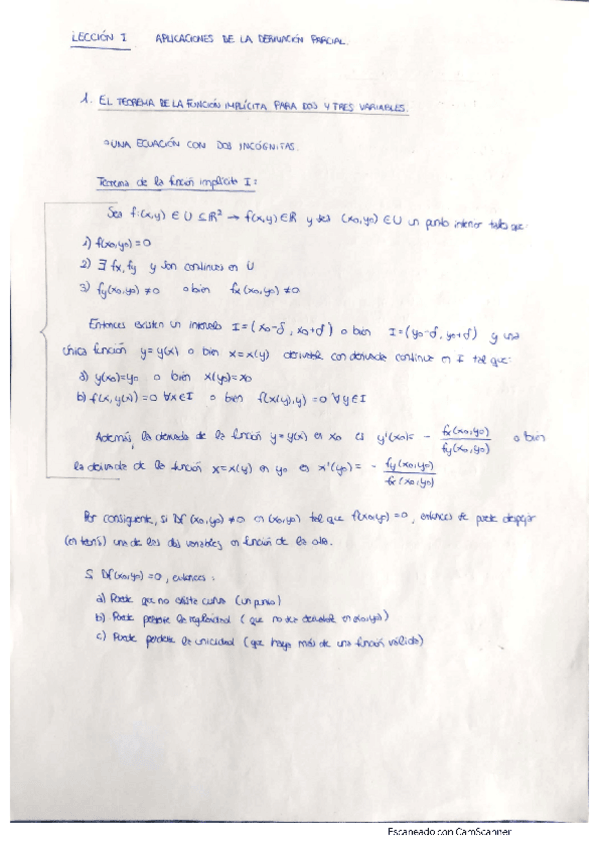 LECCIÓN I APLICACIONES DE LA DERIVACIÓN PARCIAL.
1. EL TEOREMA DE LA FUNCIÓN IMPLÍCITA PARA DOS Y TRES VARIABLES.
◦UNA ECUACIÓN CON DOS INCÓGNITAS.
Teorema de la función implícita I:
Sea f:(x,y) ∈ U ⊆ ℝ² → f(x,y) ∈ ℝ y sea (x₀,y₀) ∈ U un punto interior tal que:
1) f(x₀,y₀) = 0
2) ∃ fx, fy y son continuas en U
3) fy(x₀,y₀) ≠ 0 o bien fx(x₀,y₀) ≠ 0.
Entonces existen un intervalo I = (x₀-δ, x₀+δ) o bien I = (y₀-δ, y₀+δ) y una
única función y = y(x) o bien x = x(y) derivable con derivada continua en I tal que:
a) y(x₀) = y₀ o bien x(y₀) = x₀
b) f(x, y(x)) = 0 ∀x∈I o bien f(x(y), y) = 0 ∀y∈I
Además, la derivada de la función y = y(x) en x₀ es y'(x₀) = - fx(x₀,y₀) / fy(x₀,y₀) o bien
la derivada de la función x = x(y) en y₀ es x'(y₀) = - fy(x₀,y₀) / fx(x₀,y₀)
Por consiguiente, si Df(x₀,y₀) ≠ 0 en (x₀,y₀) tal que f(x₀,y₀) = 0, entonces se puede despejar
(en teoría) una de las dos variables en función de la otra.
Si Df(x₀,y₀) = 0, entonces:
a) Puede que no exista curva (un punto)
b) Puede perderse la regularidad (que no sea derivable en (x₀,y₀))
c) Puede perderse la unicidad (que haya más de una función válida)
Escaneado con CamScanner